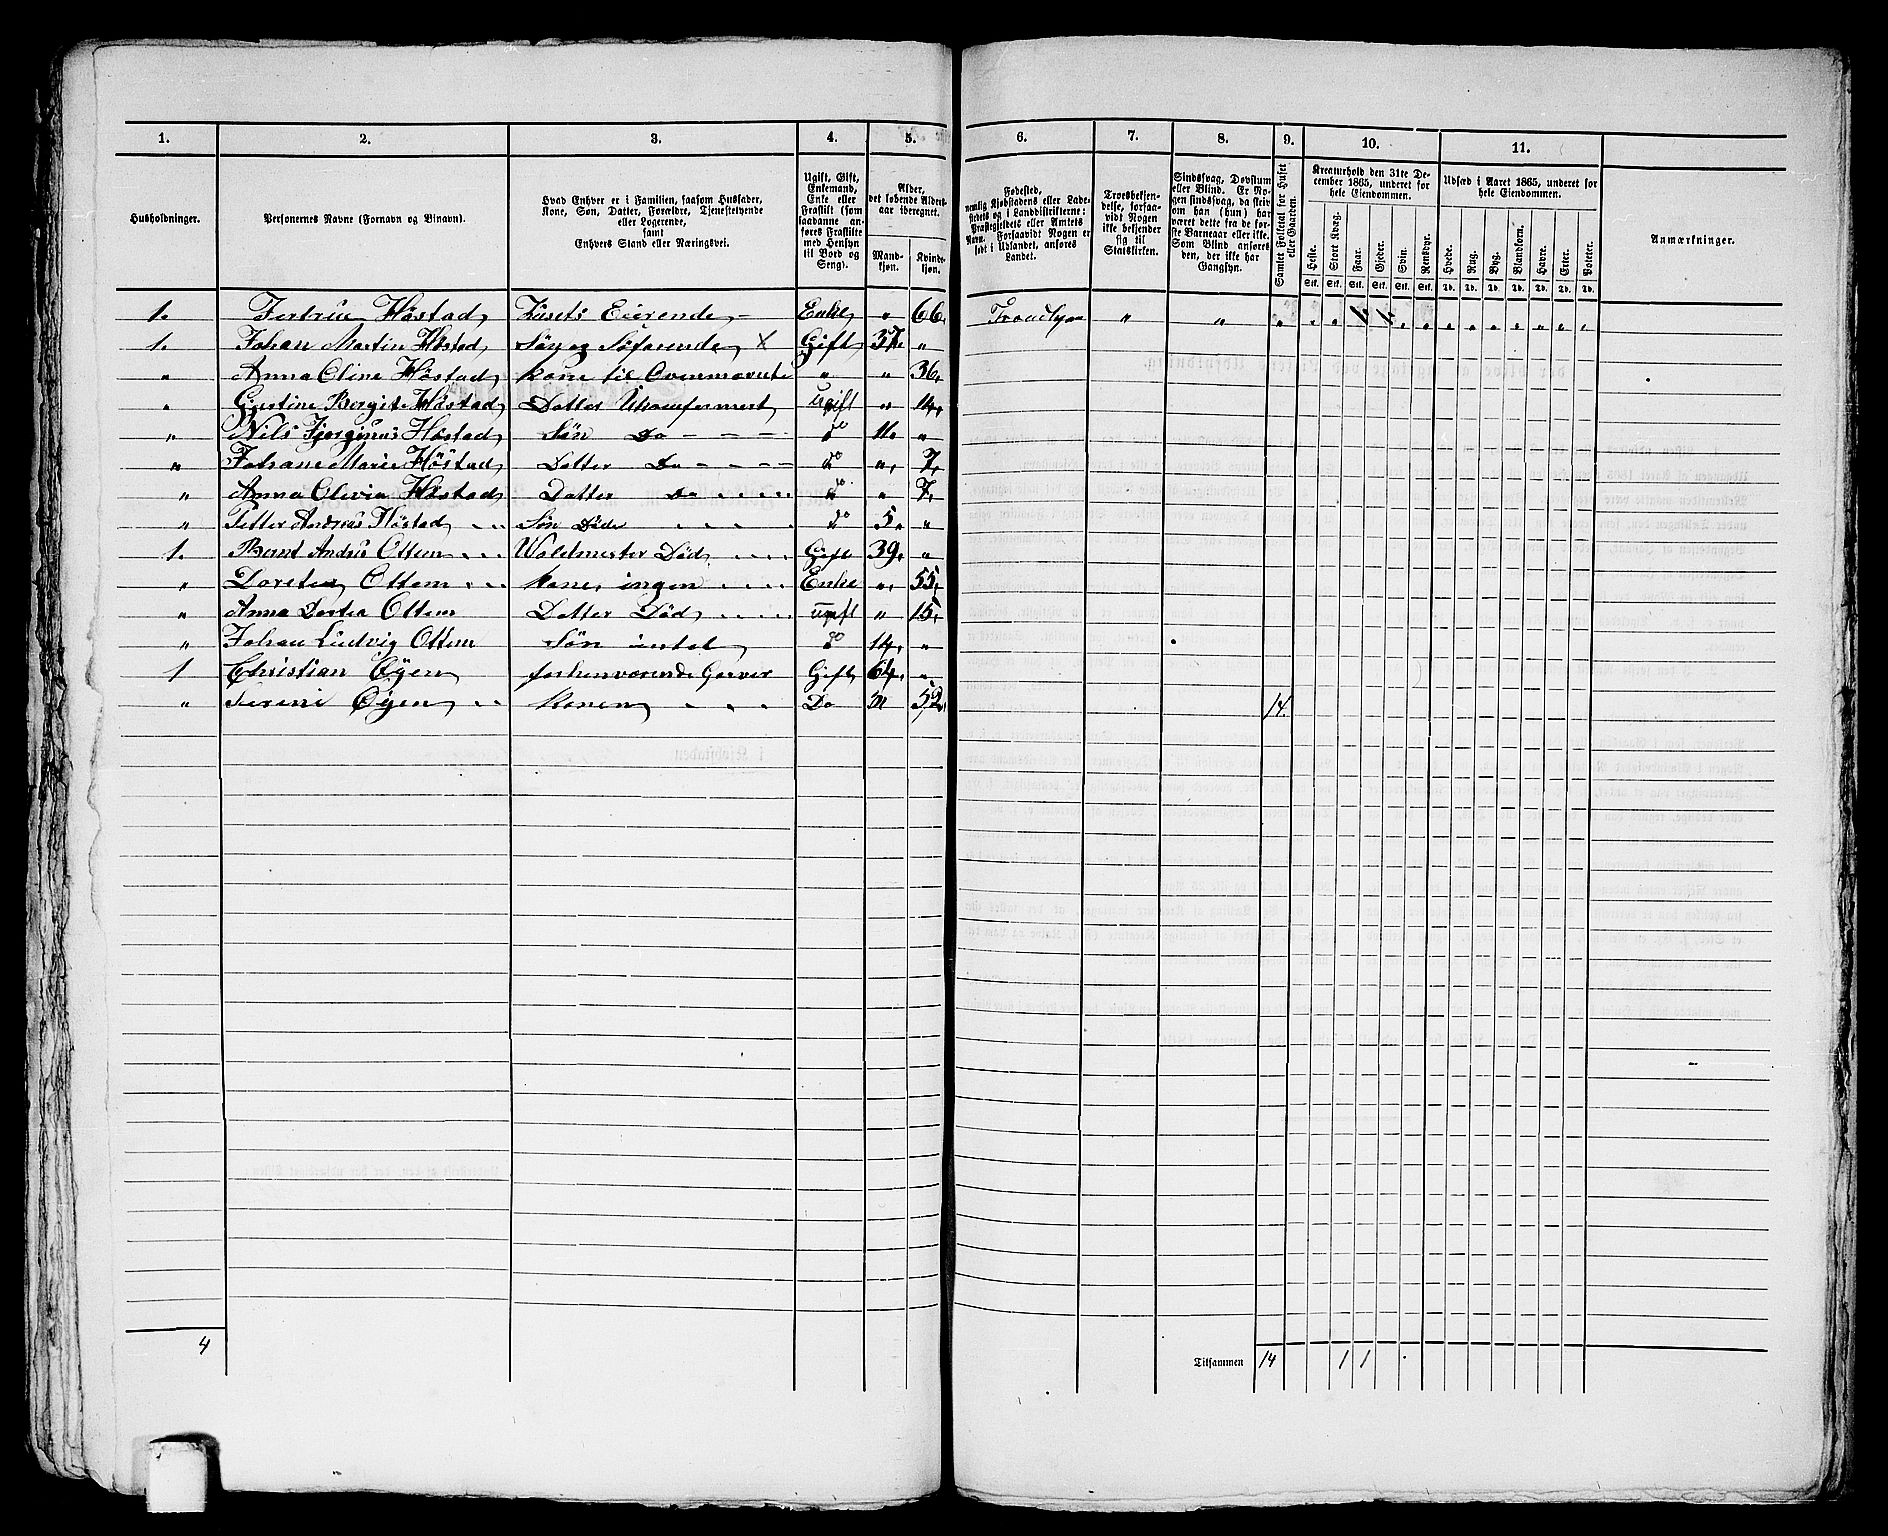 1. 2. 3. 4. 5. 6. 7. 8. 9. 10. 11.
Husholdninger.
Personernes Navne (Fornavn og Binavn).
Hvad Enhver er i Familien, saasom Husfader,
Kone, Søn, Datter, Forældre, Tjenestetyende
eller Logerende,
samt
Enhvers Stand eller Næringsvei.
Ugift, Gift,
Enkemand,
Enke eller
Fraskilt (som
saadanne an-
føres Fraskilte
med Hensyn
til Bord og
Seng).
Alder,
det løbende Alders-
aar iberegnet.
Mand-
kjøn.
Kvinde-
kjøn.
Fødested,
nemlig Kjøbstadens eller Lade-
stedets og i Landdistrikterne:
Præstegjeldets eller Amtets
Navn. Forsaavidt Nogen er
født i Udlandet, anføres
Landet.
Troesbekjen-
delse, forsaa-
vidt Nogen
ikke bekjender
sig til
Statskirken.
Sindssvag, Døvstum
eller Blind. Er No-
gen sindssvag, da skriv
om han (hun) har
været dette fra de før-
ste Barneaar eller ikke.
Som Blind anføres
den, der ikke har
Gangsyn.
Samlet Folketal for Huset
eller Gaarden.
Kreaturhold den 31te De-
cember 1865, underet for
hele Eiendommen.
Heste. Stort Kvæg. Faar. Gjeder. Svin. Rensdyr.
Stk. Stk. Stk. Stk. Stk. Stk.
Udsæd i Aaret 1865, underet for
hele Eiendommen.
Hvede. Rug. Byg. Blandkorn. Havre. Erter. Poteter.
Td. Td. Td. Td. Td. Td. Td.
Anmærkninger.
1. Høstad Husets Eierende – Enke " 66. " " "
1. Johan Martin Høstad Søn og Søfarende X Gift 37. "
" Anna Oline Høstad kone til " " 36.
" Høstad Datter Ukonfermert ugift " 14.
" Nils Høstad Søn Do – – – do 11. "
" Johane Marie Høstad Datter Do – – – do " 7.
" Anna Olivia Høstad Datter Do do " 7.
" Petter Andreas Høstad Søn Døde do 5. "
1. Ottem Død Gift 39. "
" Ottem kone, ingen Enke " 55.
" Anna Ottem Datter Død ugift " 15.
" Johan Ludvig Ottem Søn intet do 14. "
1 Christian Øyen forhenværende Garver Gift 64. "
" Øyen konen Do " 52. 14.
4 Tilsammen 14 1 1